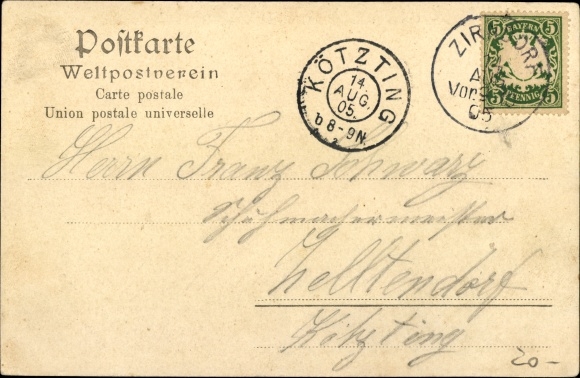 Postkarte
Weltpostverein
Carte postale
Union postale universelle
KÖTZTING
14.
AUG.
05.
b 8-9N.
ZIRNDORF
AUG
Vor
05
5 BAYERN 5
5 PFENNIG 5
Herrn Franz Schwarz
Schuhmachermeister
Zelttendorf
Kötzting
20-